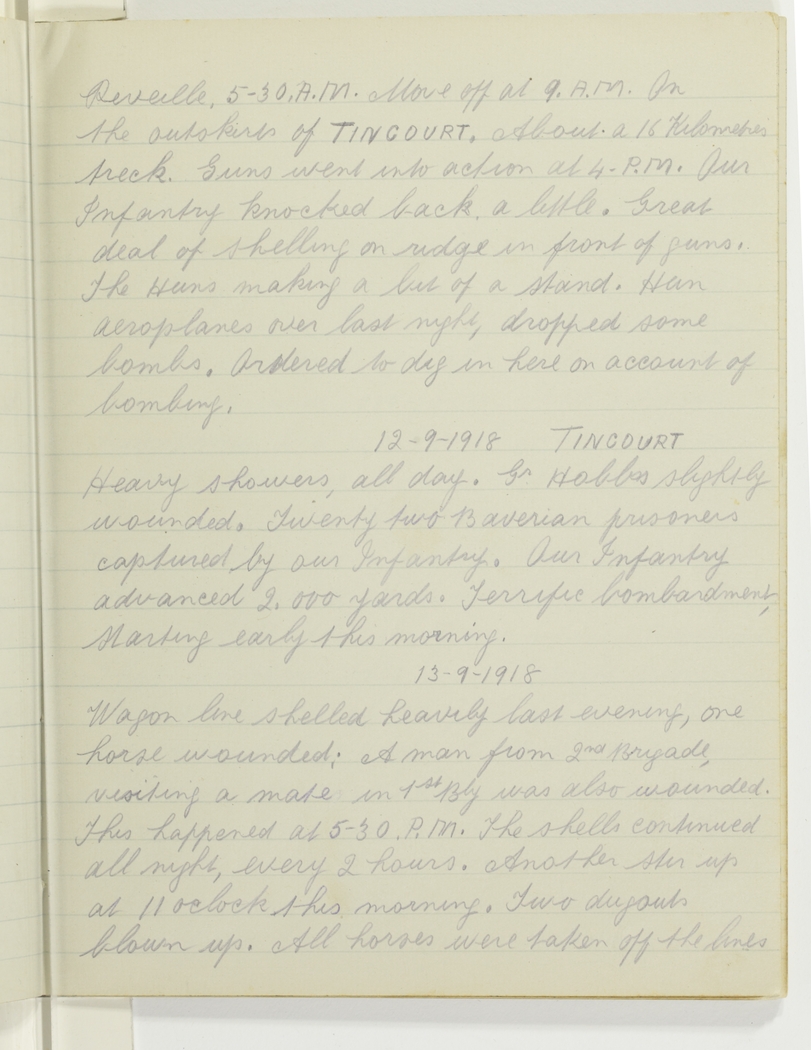 Reveille, 5-30, A.M. Move off at 9. A.M. On
the outskirts of TINCOURT. About a 16 Kilometres
treck. Guns went into action at 4- P.M. Our
Infantry knocked back, a little. Great
deal of shelling on ridge in front of guns.
The Huns making a bit of a stand. Hun
aeroplanes over last night, dropped some
bombs. Ordered to dig in here on account of
bombing.
12-9-1918 TINCOURT
Heavy showers, all day. Gr Hobbs slightly
wounded. Twenty two Baverian prisoners
captured by our Infantry. Our Infantry
advanced 2,000 yards. Terrific bombardment,
starting early this morning.
13-9-1918
Wagon line shelled heavily last evening, one
horse wounded; A man from 2nd Brigade,
visiting a mate in 1st Bty was also wounded.
This happened at 5-30 P.M. The shells continued
all night, every 2 hours. Another stir up
at 11 oclock this morning. Two dugouts
blown up. All horses were taken off the lines